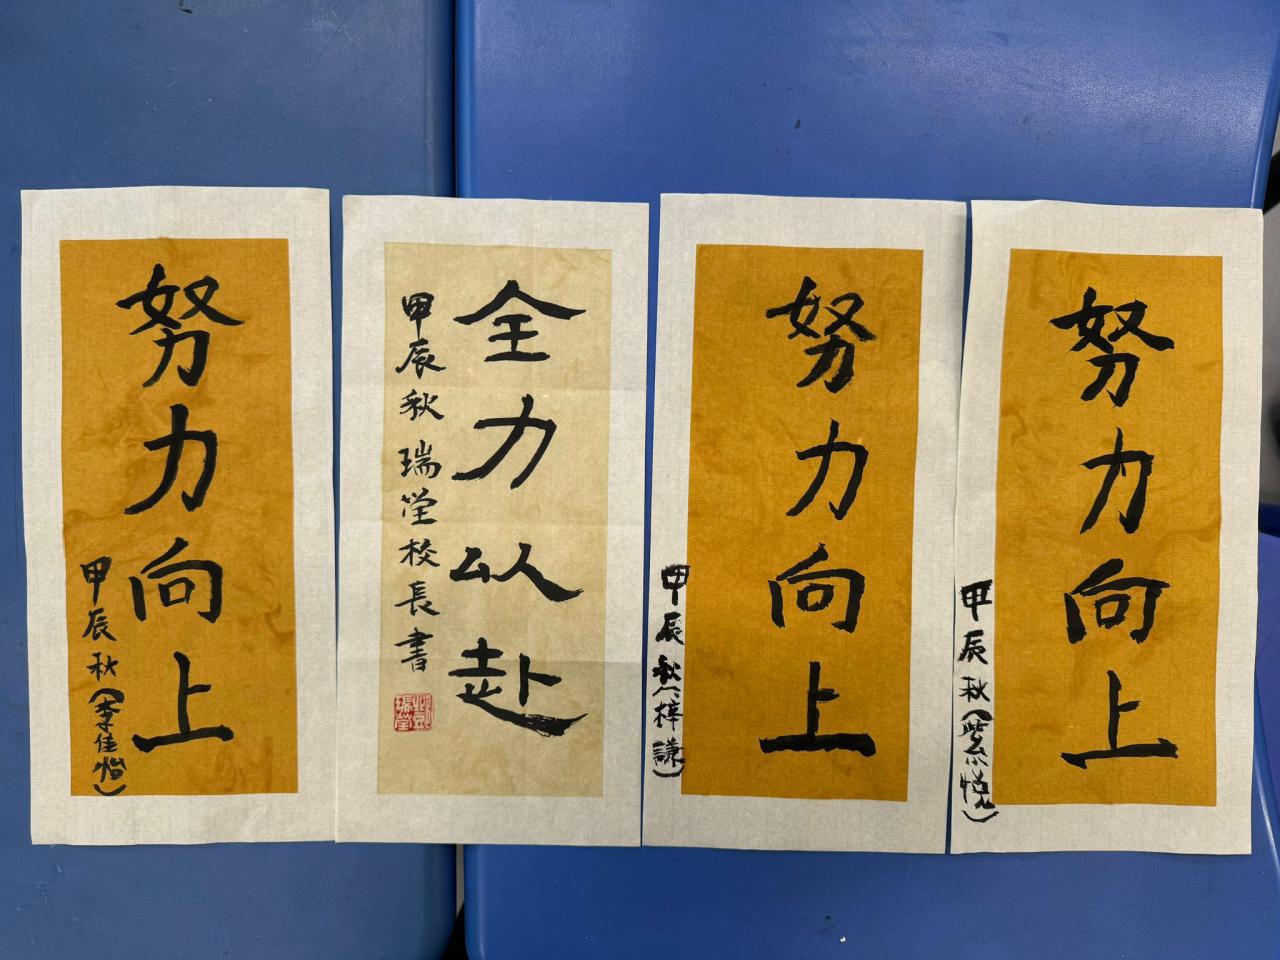 努力向上
甲辰秋（李佳怡）
全力以赴
甲辰秋瑞莹校長書
努力向上
甲辰秋（梓謙）
努力向上
甲辰秋（紫悦）